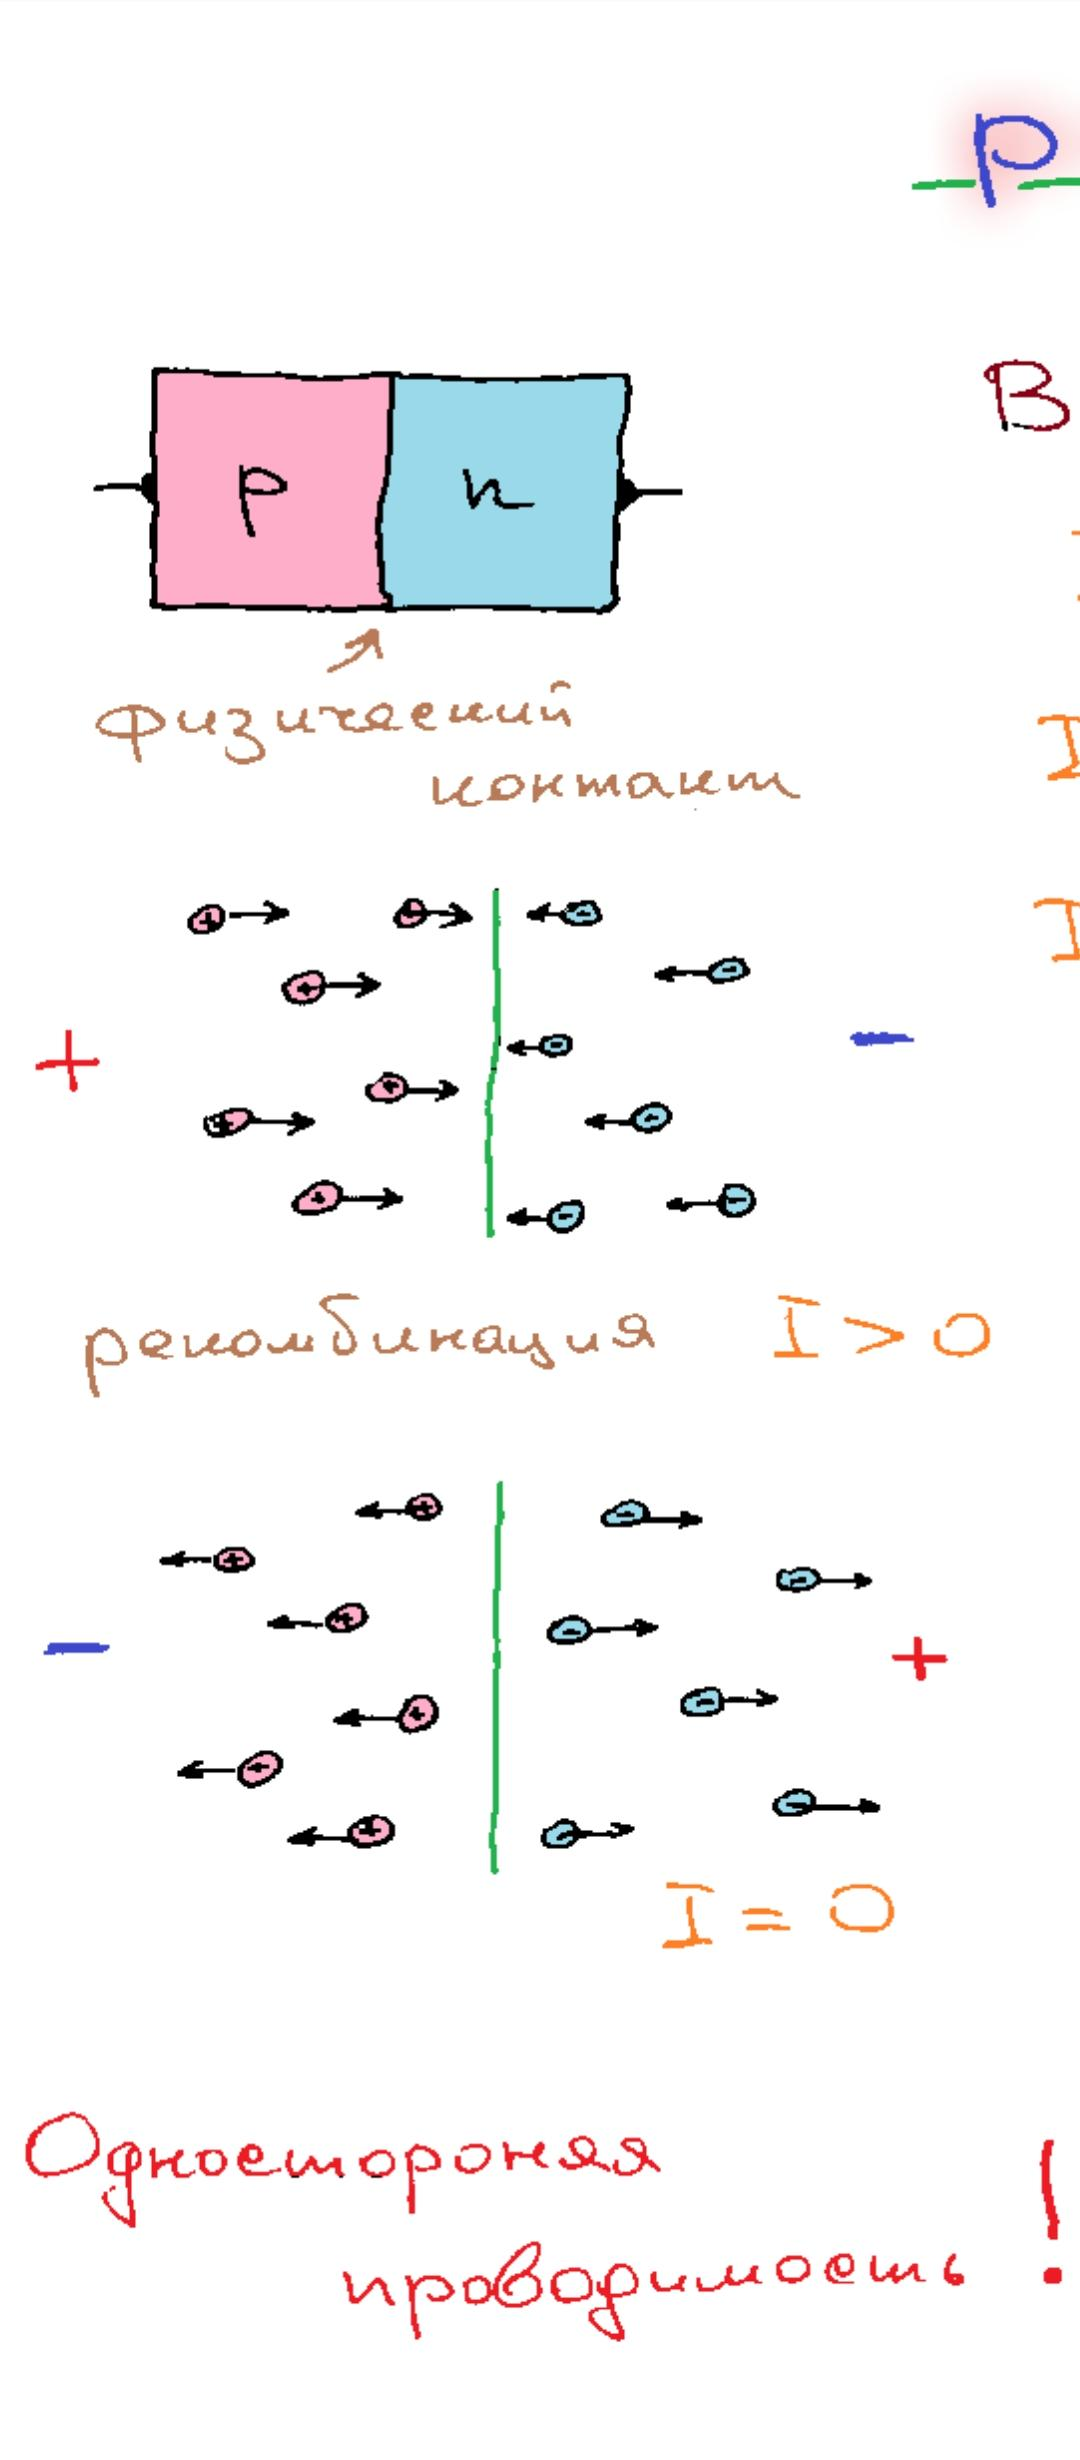 p
В
p n
физический
контакт
I
I
+ -
рекомбинация I > 0
- +
I = 0
Одностороняя
проводимость !